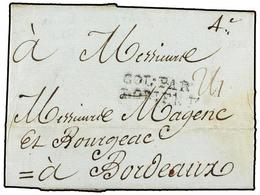 4.c
à Messieurs
COL. PAR
Messieurs Magenc
Et Bourgeac
= à Bordeaux